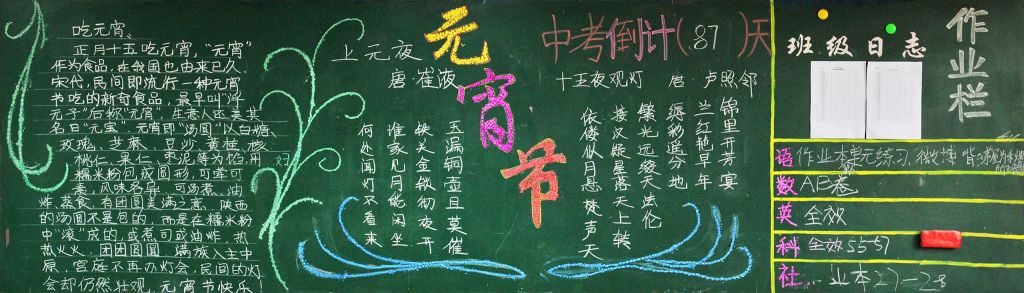 吃元宵、
正月十五吃元宵，“元宵”
作为食品，在我国也由来已久.
宋代，民间即流行一种元宵
节吃的新奇食品，最早叫“浮
元子”后称“元宵”，生意人还美其
名曰“元宝”。元宵即“汤圆”以白糖、
玫瑰、芝麻、豆沙、黄桂、核
桃仁、果仁、枣泥等为馅，用
糯米粉包成圆形，可荤可
素，风味各异，可汤煮、油
炸、蒸食，有团圆美满之意，陕西
的汤圆不是包的，而是在糯米粉
中“滚”成的，或煮可或油炸，热
热火火，团团圆圆，满族入主中
原，宫庭不再办灯会，民间的灯
会却仍然壮观，元宵节快乐！
上元夜
唐·崔液
玉漏铜壶且莫催
铁关金锁彻夜开
谁家见月能闲坐
何处闻灯不看来
元宵节
中考倒计(87)天
十五夜观灯
唐·卢照邻
锦里开芳宴
兰红艳早年
缛彩遥分地
繁光远缀天
接汉疑星落
依楼似月悬
作业栏
班级日志
语 作业本单元练习，微博
数 AB卷
英 全效
科 全效55-57
社 业本27-28